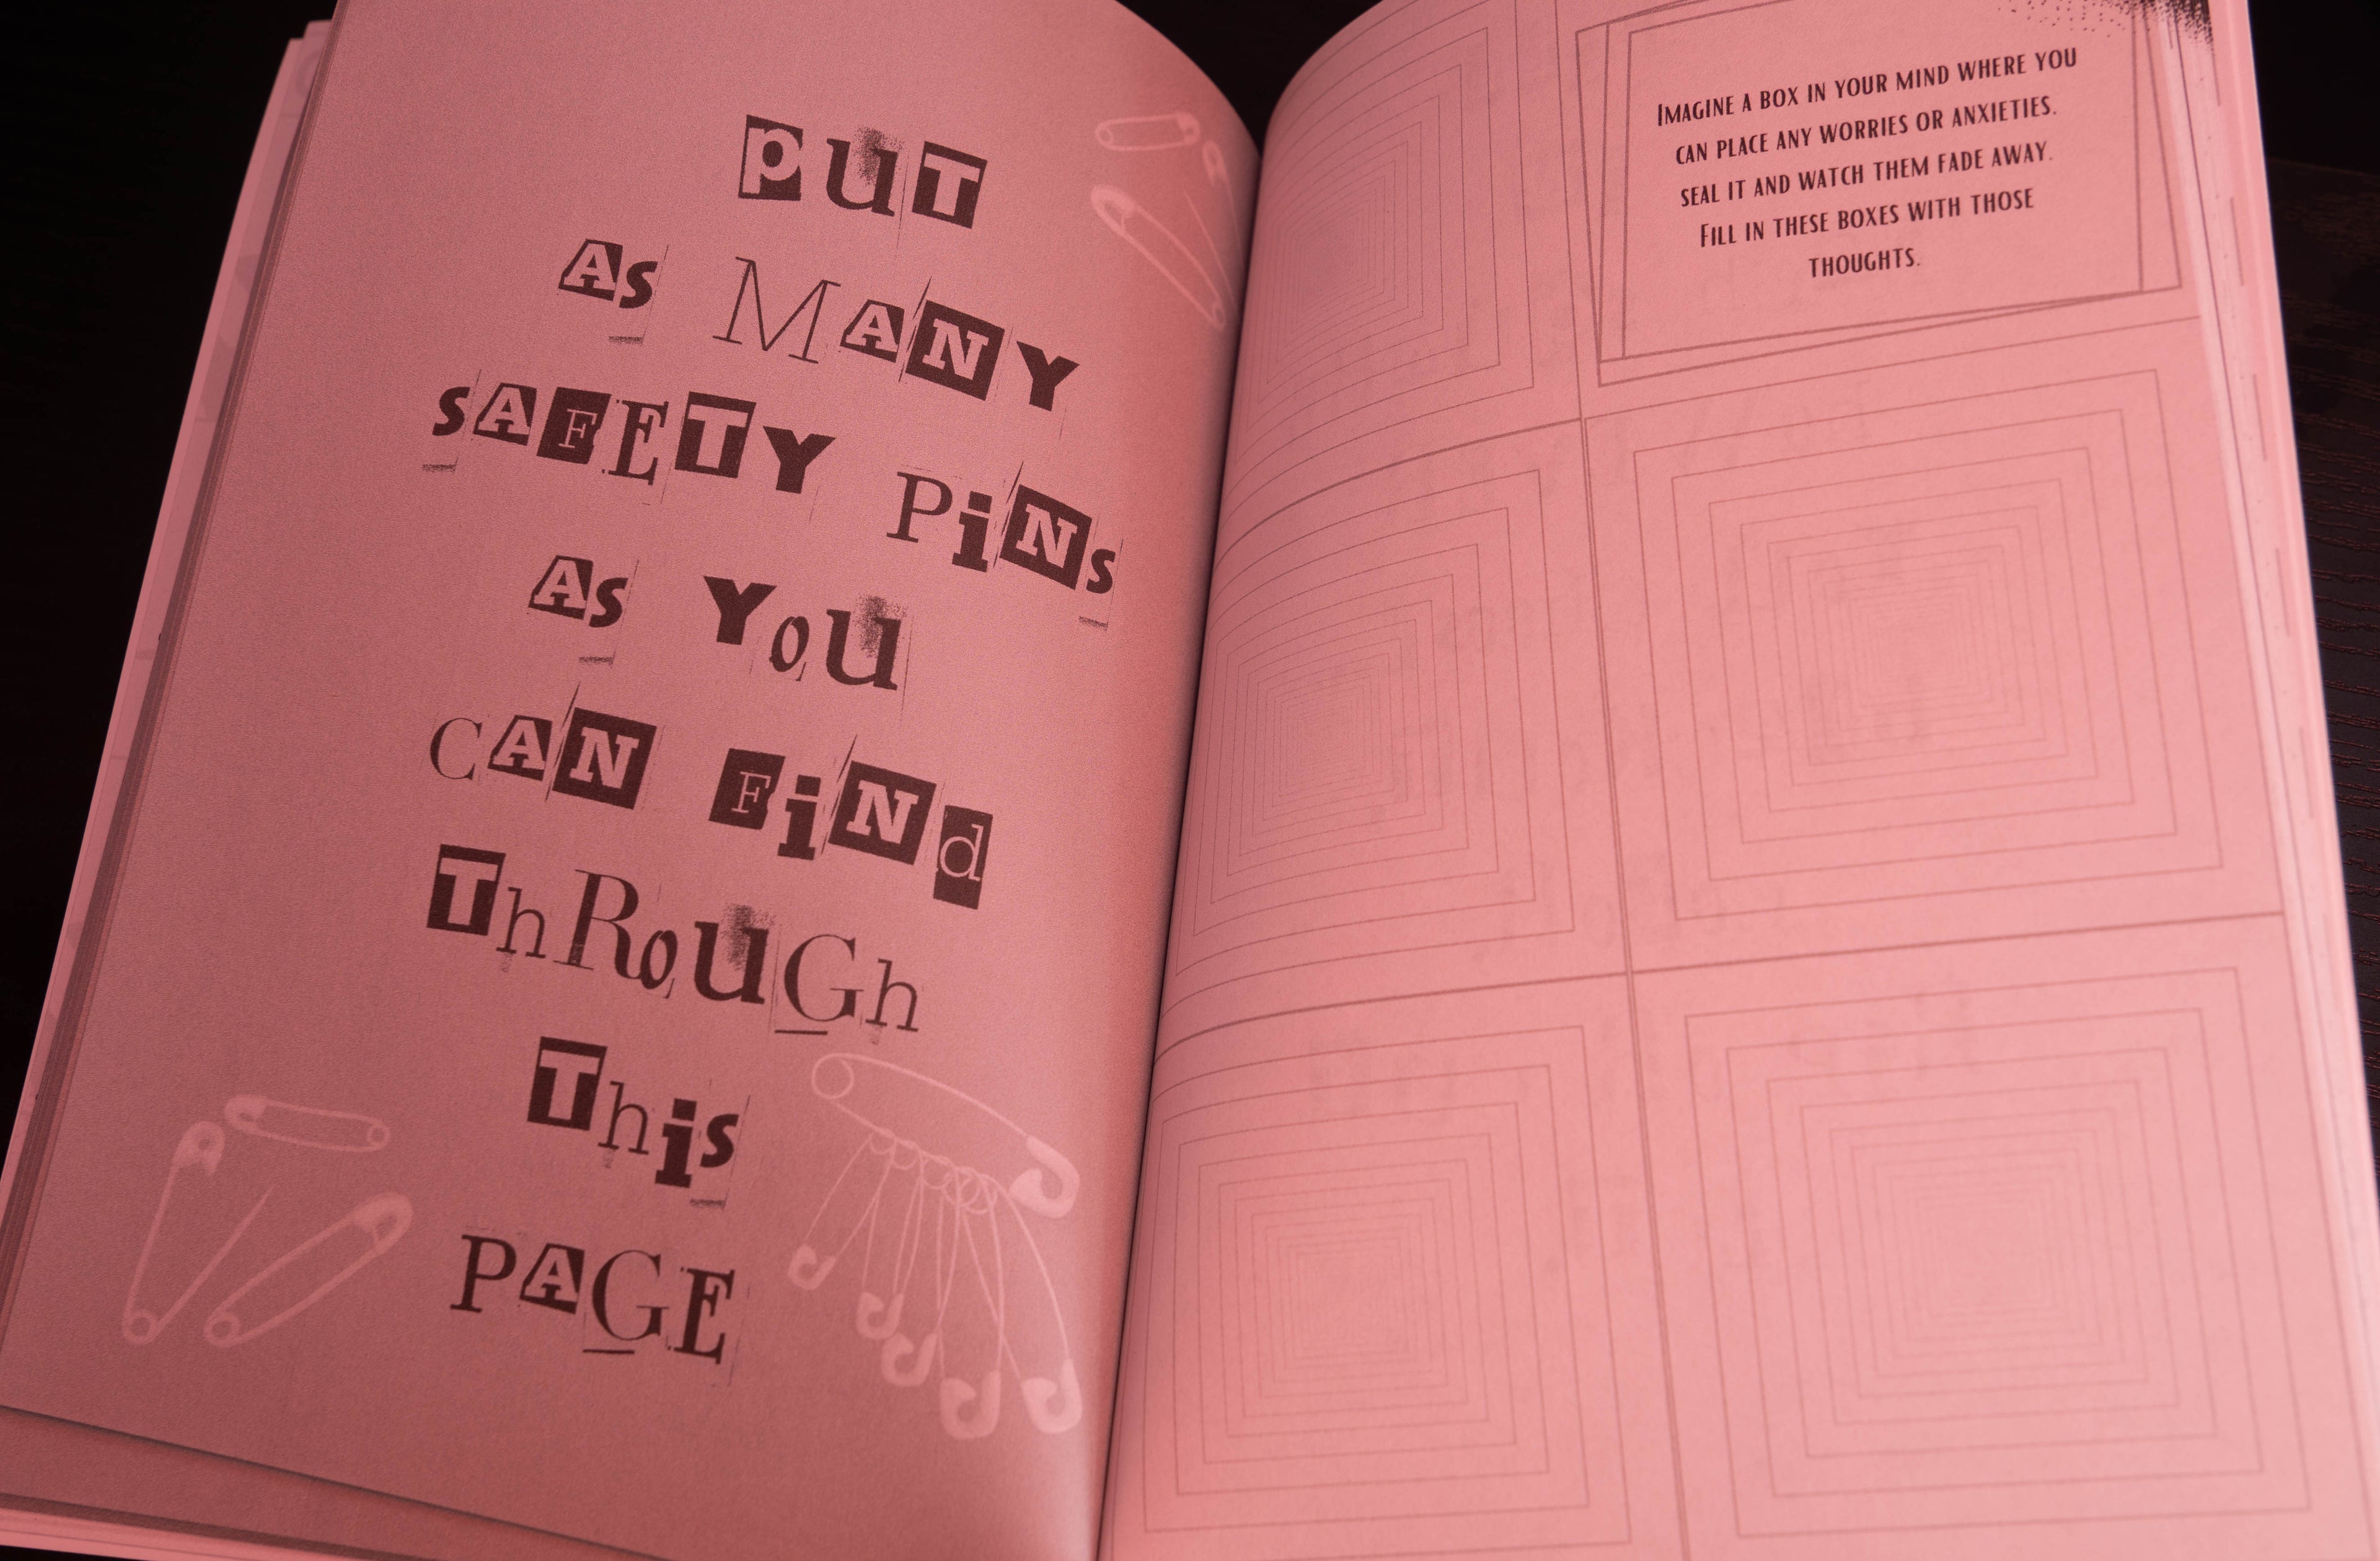 PUT
As MANY
sAFETY PiNs
As YoU
CAN FiNd
ThRoUGh
This
PAGE
Imagine a box in your mind where you
can place any worries or anxieties.
Seal it and watch them fade away.
Fill in these boxes with those
thoughts.